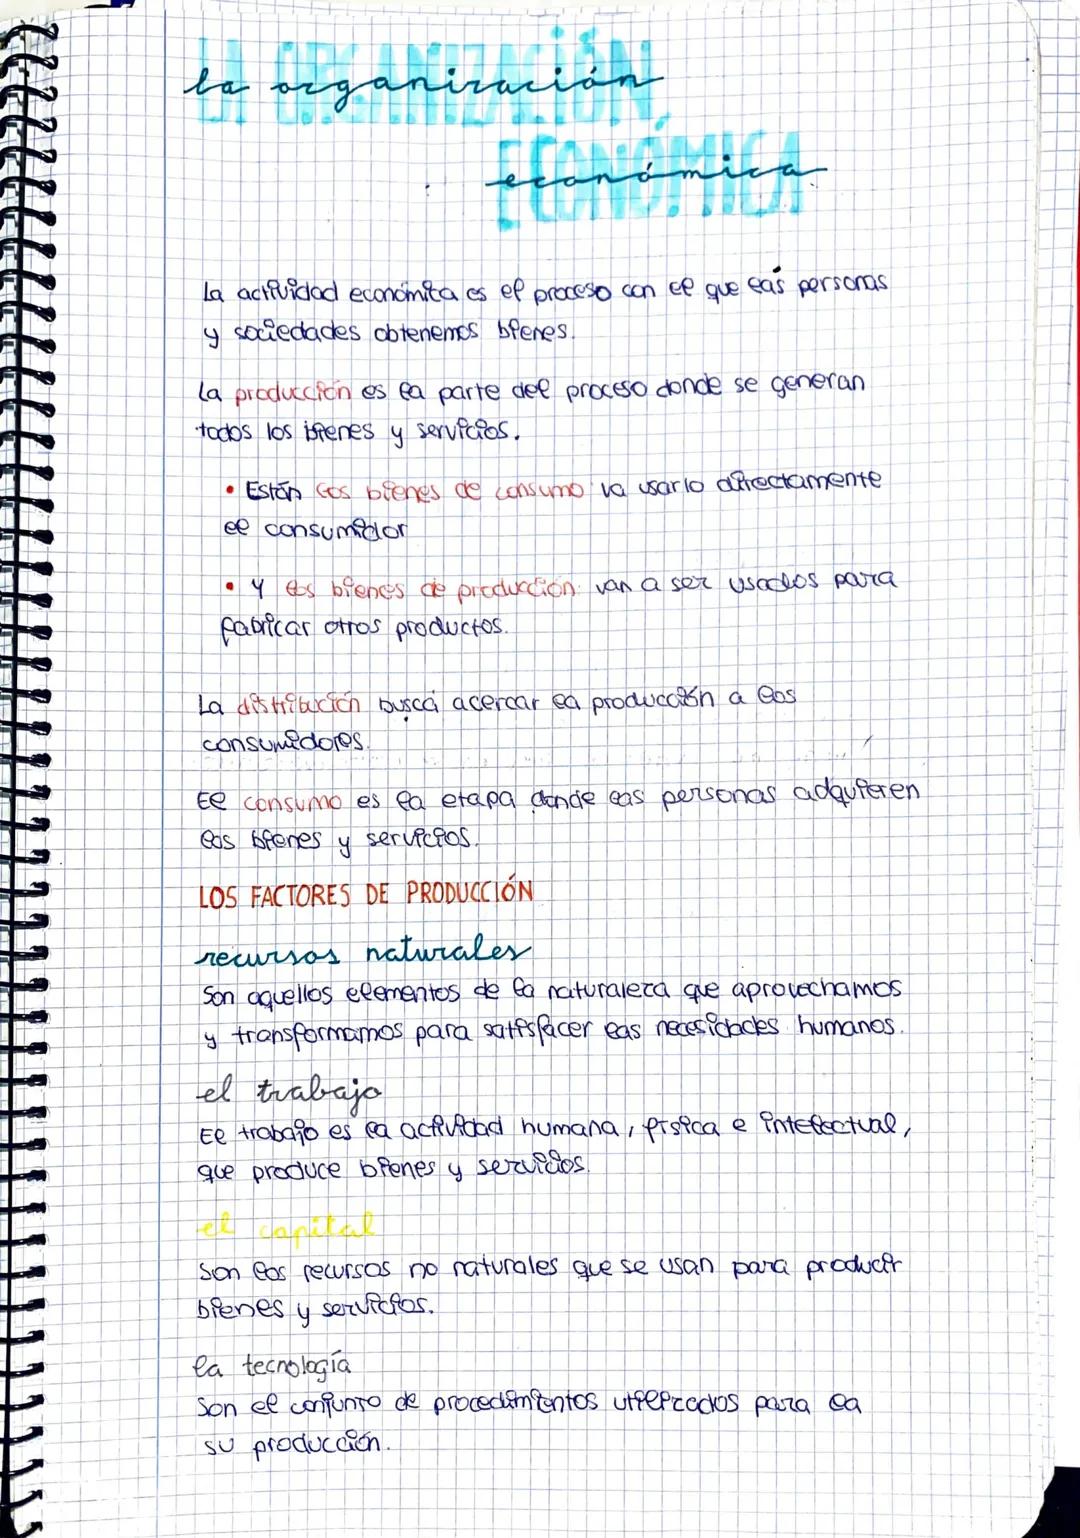 LA ORGANIZACIÓN
la organización
ECONÓMICA
económica
La actividad económica es el proceso con el que las personas
y sociedades obtenemos bienes.
La producción es la parte del proceso donde se generan
todos los bienes y servicios.
• Están los bienes de consumo va usarlo directamente
el consumidor
• Y los bienes de producción: van a ser usados para
fabricar otros productos.
La distribución busca acercar la producción a los
consumidores.
El consumo es la etapa donde las personas adquieren
los bienes y servicios.
LOS FACTORES DE PRODUCCIÓN
recursos naturales
Son aquellos elementos de la naturaleza que aprovechamos
y transformamos para satisfacer las necesidades humanas.
el trabajo
El trabajo es la actividad humana, física e intelectual,
que produce bienes y servicios.
el capital
Son los recursos no naturales que se usan para producir
bienes y servicios.
la tecnología
Son el conjunto de procedimientos utilizados para la
su producción.